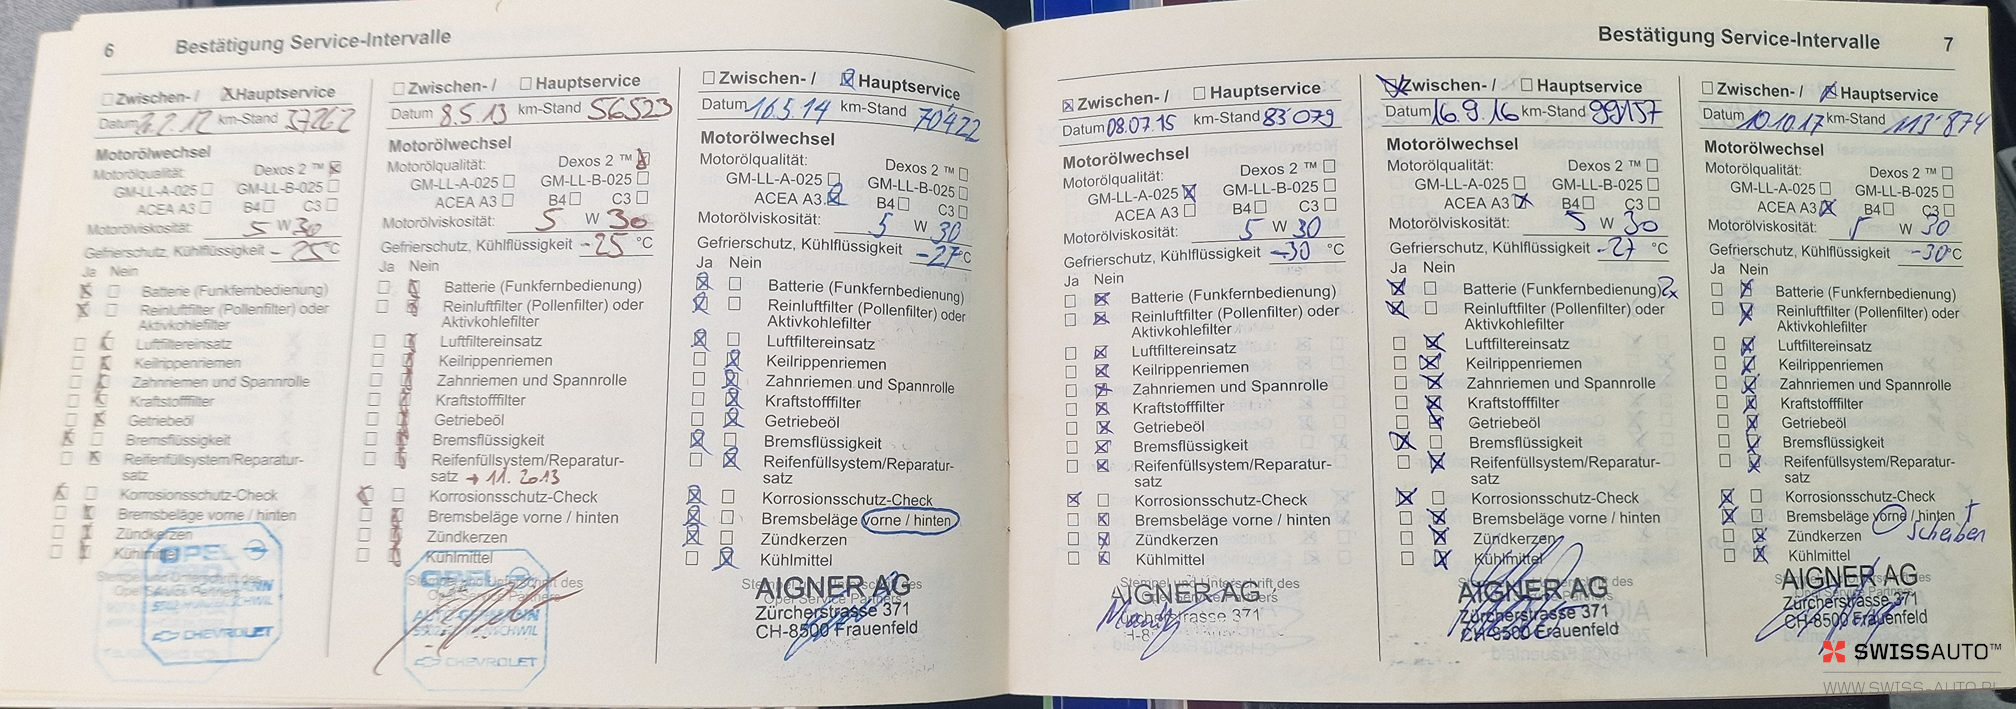 6 Bestätigung Service-Intervalle
☐ Zwischen- / ☒ Hauptservice
Datum 2.2.12 km-Stand 37262
Motorölwechsel
Motorölqualität: Dexos 2 ™ ☒
GM-LL-A-025 ☐ GM-LL-B-025 ☐
ACEA A3 ☐ B4 ☐ C3 ☐
Motorölviskosität: 5 W 30
Gefrierschutz, Kühlflüssigkeit -25 °C
Ja Nein
☒ ☐ Batterie (Funkfernbedienung)
☒ ☐ Reinluftfilter (Pollenfilter) oder
Aktivkohlefilter
☐ ☒ Luftfiltereinsatz
☐ ☒ Keilrippenriemen
☐ ☒ Zahnriemen und Spannrolle
☐ ☒ Kraftstofffilter
☐ ☒ Getriebeöl
☒ ☐ Bremsflüssigkeit
☐ ☒ Reifenfüllsystem/Reparatur-
satz
☒ ☐ Korrosionsschutz-Check
☐ ☒ Bremsbeläge vorne / hinten
☐ ☒ Zündkerzen
☐ ☒ Kühlmittel
Stempel und Unterschrift des
Opel Service Partners
OPEL
CHEVROLET
☐ Zwischen- / ☐ Hauptservice
Datum 8.5.13 km-Stand 56523
Motorölwechsel
Motorölqualität: Dexos 2 ™ ☒
GM-LL-A-025 ☐ GM-LL-B-025 ☐
ACEA A3 ☐ B4 ☐ C3 ☐
Motorölviskosität: 5 W 30
Gefrierschutz, Kühlflüssigkeit -25 °C
Ja Nein
☐ ☒ Batterie (Funkfernbedienung)
☐ ☒ Reinluftfilter (Pollenfilter) oder
Aktivkohlefilter
☐ ☒ Luftfiltereinsatz
☐ ☒ Keilrippenriemen
☐ ☒ Zahnriemen und Spannrolle
☐ ☒ Kraftstofffilter
☐ ☒ Getriebeöl
☐ ☒ Bremsflüssigkeit
☐ ☒ Reifenfüllsystem/Reparatur-
satz → 11.2013
☒ ☐ Korrosionsschutz-Check
☐ ☒ Bremsbeläge vorne / hinten
☐ ☒ Zündkerzen
☐ ☒ Kühlmittel
Stempel und Unterschrift des
Opel Service Partners
OPEL
CHEVROLET
☐ Zwischen- / ☒ Hauptservice
Datum 16.5.14 km-Stand 70'422
Motorölwechsel
Motorölqualität: Dexos 2 ™ ☐
GM-LL-A-025 ☐ GM-LL-B-025 ☐
ACEA A3 ☒ B4 ☐ C3 ☐
Motorölviskosität: 5 W 30
Gefrierschutz, Kühlflüssigkeit -27 °C
Ja Nein
☒ ☐ Batterie (Funkfernbedienung)
☒ ☐ Reinluftfilter (Pollenfilter) oder
Aktivkohlefilter
☒ ☐ Luftfiltereinsatz
☐ ☒ Keilrippenriemen
☐ ☒ Zahnriemen und Spannrolle
☐ ☒ Kraftstofffilter
☐ ☒ Getriebeöl
☒ ☐ Bremsflüssigkeit
☐ ☒ Reifenfüllsystem/Reparatur-
satz
☒ ☐ Korrosionsschutz-Check
☒ ☐ Bremsbeläge vorne / hinten
☒ ☐ Zündkerzen
☐ ☒ Kühlmittel
Stempel und Unterschrift des
AIGNER AG
Zürcherstrasse 371
CH-8500 Frauenfeld
Bestätigung Service-Intervalle 7
☒ Zwischen- / ☐ Hauptservice
Datum 08.07.15 km-Stand 83'079
Motorölwechsel
Motorölqualität: Dexos 2 ™ ☐
GM-LL-A-025 ☒ GM-LL-B-025 ☐
ACEA A3 ☐ B4 ☐ C3 ☐
Motorölviskosität: 5 W 30
Gefrierschutz, Kühlflüssigkeit -30 °C
Ja Nein
☐ ☒ Batterie (Funkfernbedienung)
☐ ☒ Reinluftfilter (Pollenfilter) oder
Aktivkohlefilter
☐ ☒ Luftfiltereinsatz
☐ ☒ Keilrippenriemen
☐ ☒ Zahnriemen und Spannrolle
☐ ☒ Kraftstofffilter
☐ ☒ Getriebeöl
☐ ☒ Bremsflüssigkeit
☐ ☒ Reifenfüllsystem/Reparatur-
satz
☒ ☐ Korrosionsschutz-Check
☐ ☒ Bremsbeläge vorne / hinten
☐ ☒ Zündkerzen
☐ ☒ Kühlmittel
Stempel und Unterschrift des
AIGNER AG
☒ Zwischen- / ☐ Hauptservice
Datum 16.9.16 km-Stand 99157
Motorölwechsel
Motorölqualität: Dexos 2 ™ ☐
GM-LL-A-025 ☐ GM-LL-B-025 ☐
ACEA A3 ☒ B4 ☐ C3 ☐
Motorölviskosität: 5 W 30
Gefrierschutz, Kühlflüssigkeit -27 °C
Ja Nein
☒ ☐ Batterie (Funkfernbedienung) 2x
☒ ☐ Reinluftfilter (Pollenfilter) oder
Aktivkohlefilter
☐ ☒ Luftfiltereinsatz
☐ ☒ Keilrippenriemen
☐ ☒ Zahnriemen und Spannrolle
☐ ☒ Kraftstofffilter
☐ ☒ Getriebeöl
☒ ☐ Bremsflüssigkeit
☐ ☒ Reifenfüllsystem/Reparatur-
satz
☒ ☐ Korrosionsschutz-Check
☐ ☒ Bremsbeläge vorne / hinten
☐ ☒ Zündkerzen
☐ ☒ Kühlmittel
AIGNER AG
Zürcherstrasse 371
CH-8500 Frauenfeld
☐ Zwischen- / ☒ Hauptservice
Datum 10.10.17 km-Stand 113'874
Motorölwechsel
Motorölqualität: Dexos 2 ™ ☐
GM-LL-A-025 ☐ GM-LL-B-025 ☐
ACEA A3 ☒ B4 ☐ C3 ☐
Motorölviskosität: 5 W 30
Gefrierschutz, Kühlflüssigkeit -30 °C
Ja Nein
☐ ☒ Batterie (Funkfernbedienung)
☐ ☒ Reinluftfilter (Pollenfilter) oder
Aktivkohlefilter
☐ ☒ Luftfiltereinsatz
☐ ☒ Keilrippenriemen
☐ ☒ Zahnriemen und Spannrolle
☐ ☒ Kraftstofffilter
☐ ☒ Getriebeöl
☐ ☒ Bremsflüssigkeit
☐ ☒ Reifenfüllsystem/Reparatur-
satz
☒ ☐ Korrosionsschutz-Check
☒ ☐ Bremsbeläge vorne / hinten +
Scheiben
☐ ☒ Zündkerzen
☐ ☒ Kühlmittel
AIGNER AG
Zürcherstrasse 371
CH-8500 Frauenfeld
SWISSAUTO™
WWW.SWISS-AUTO.PL